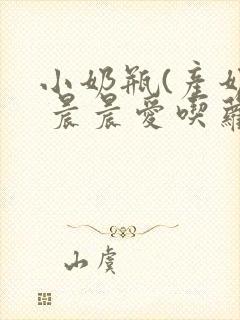 小奶瓶(產奶
晨晨愛喫蘿
山虞